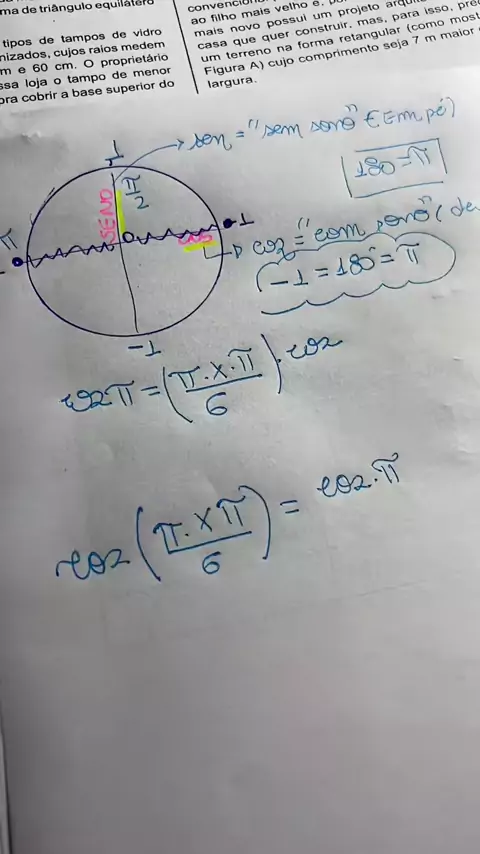 ma de triângulo equilátero
tipos de tampos de vidro
nizados, cujos raios medem
m e 60 cm. O proprietário
ssa loja o tampo de menor
ora cobrir a base superior do
ao filho mais velho e,
mais novo possui um projeto arquit
casa que quer construir, mas, para isso, prec
um terreno na forma retangular (como most
Figura A) cujo comprimento seja 7 m maior
largura.
1
sen = "sem sono" (Em pé)
180 = π
π/2
SENO
π
0
1
cos
cos = "com sono" (de
-1 = 180° = π
-1
cos π = (π . x . π / 6) . cos
cos (π . x π / 6) = cos . π